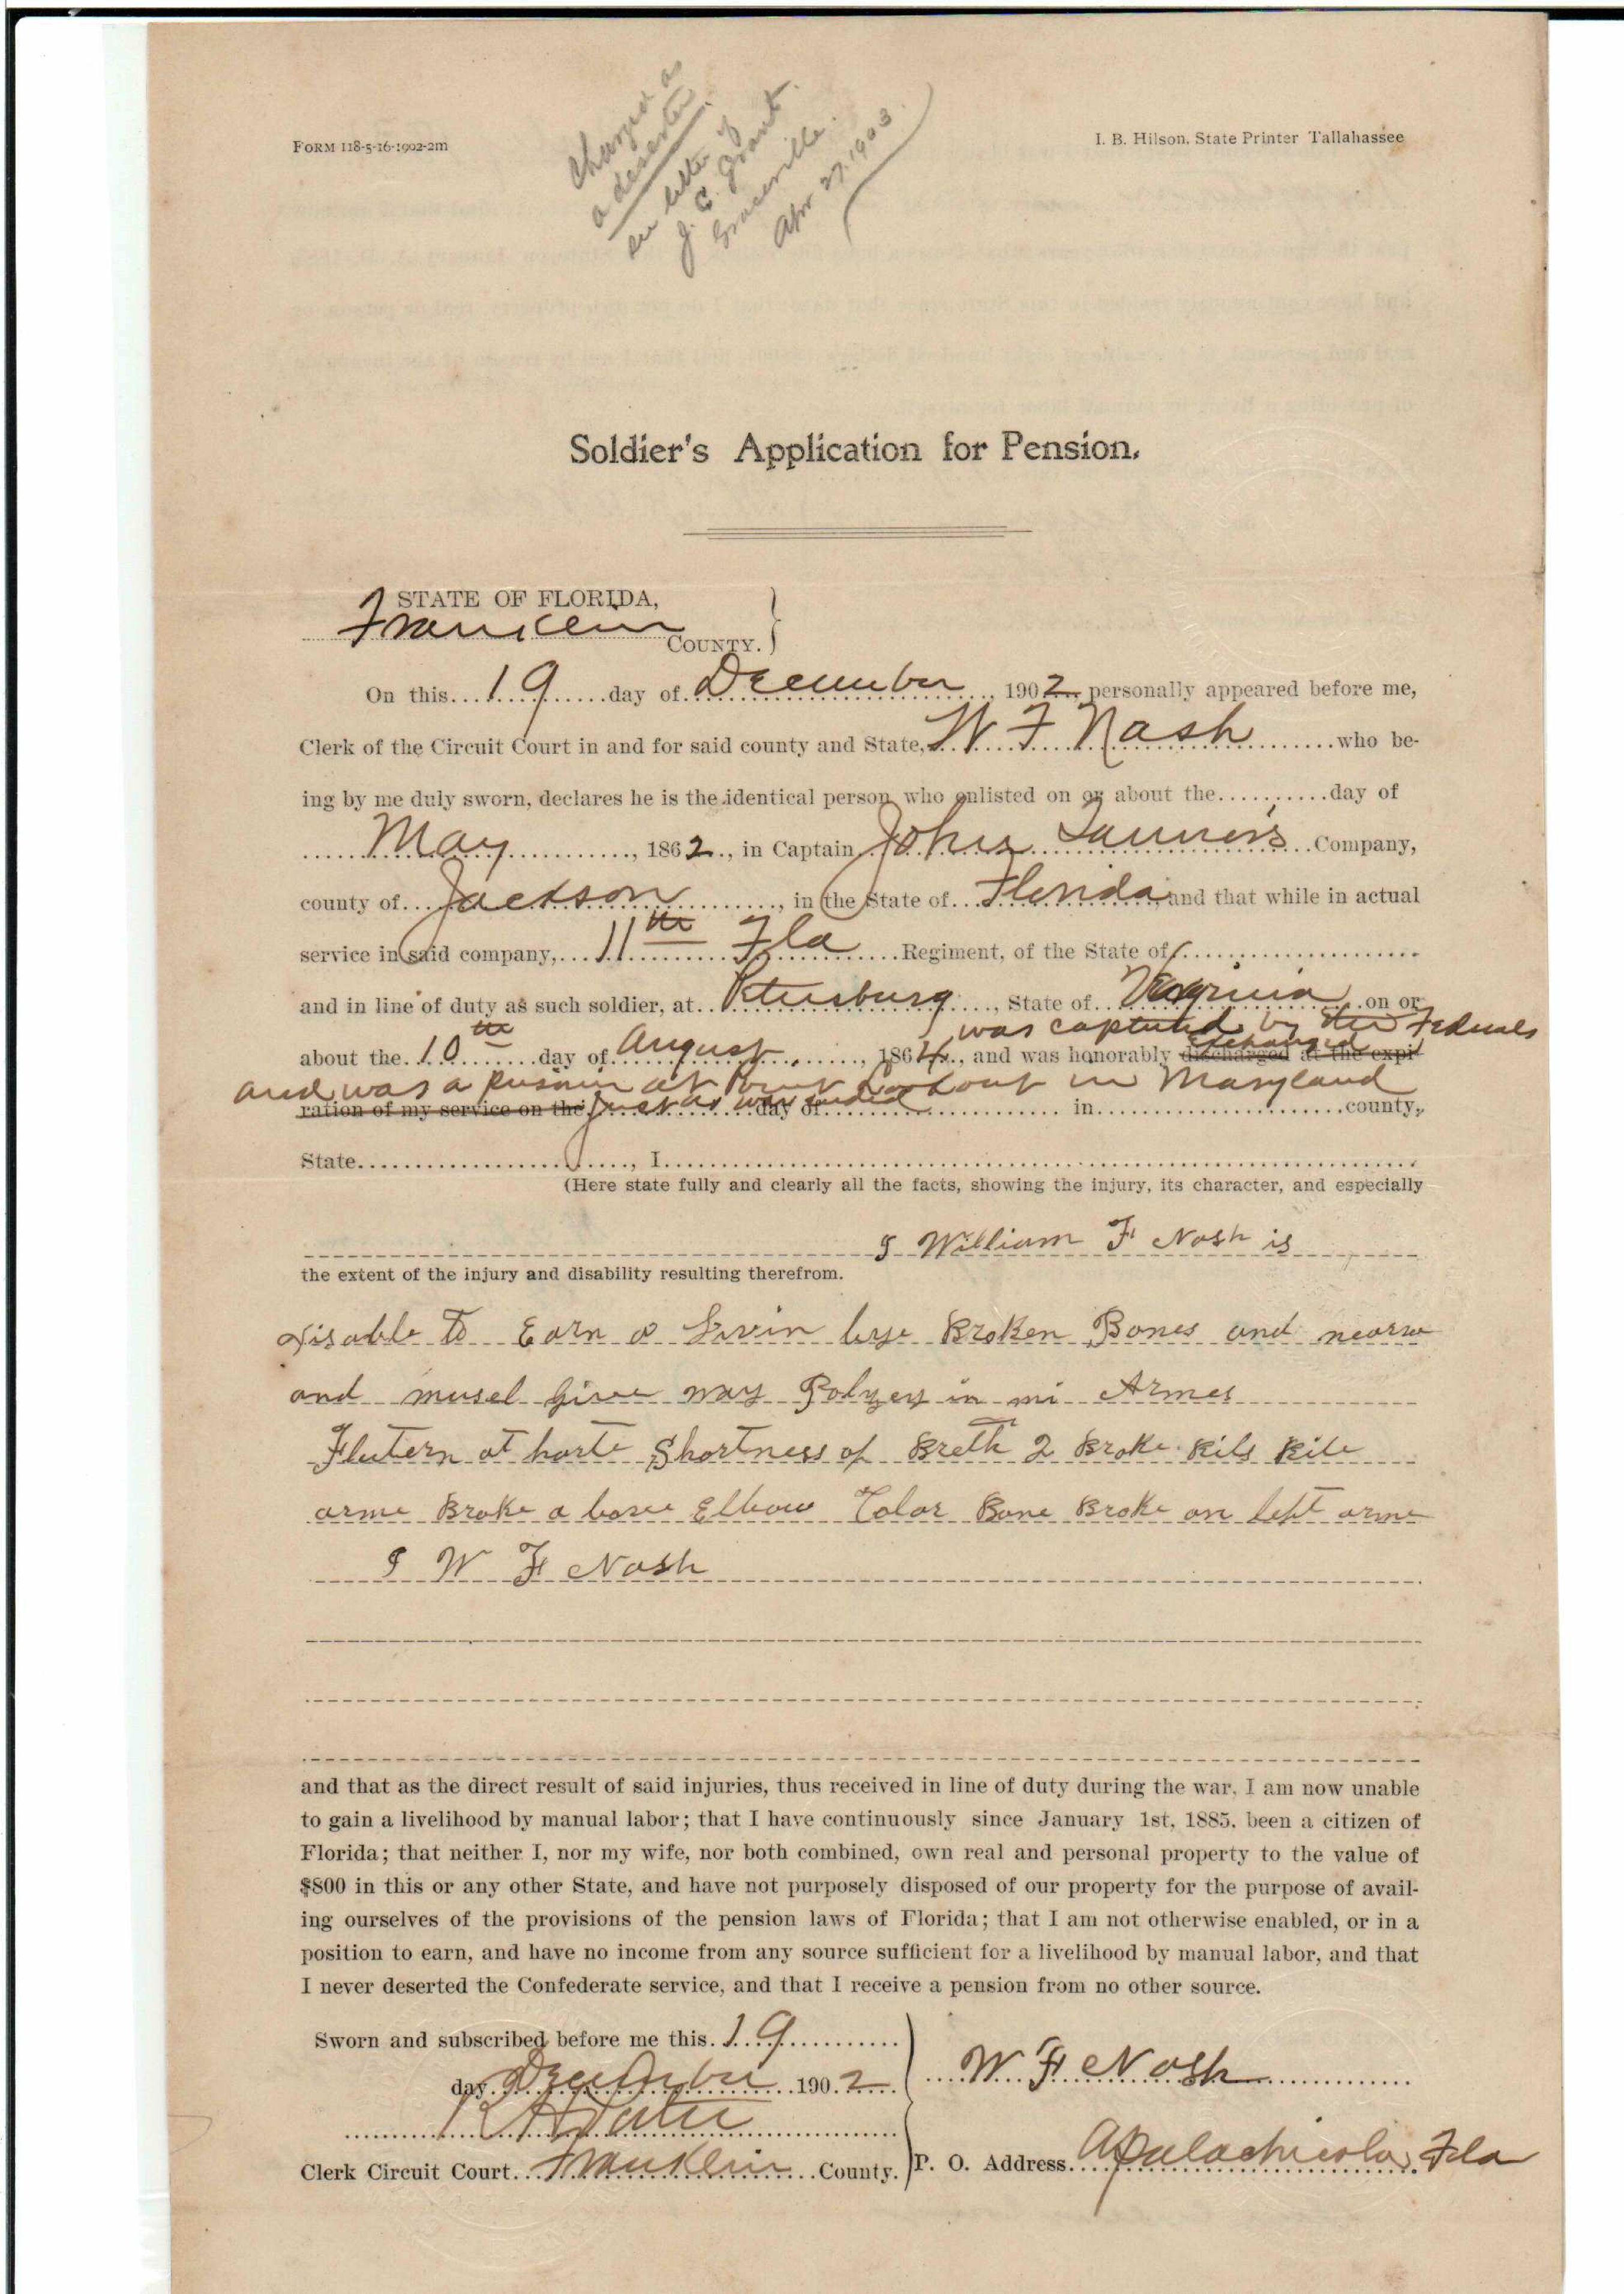 FORM 118-5-16-1902-2m
I. B. Hilson, State Printer Tallahassee
Charged as
a deserter
see letter of
J. C. Grant
Graceville
Apr 27, 1903
Soldier's Application for Pension.
STATE OF FLORIDA,
Franklin COUNTY.
On this 19 day of December, 1902, personally appeared before me,
Clerk of the Circuit Court in and for said county and State, W F Nash who be-
ing by me duly sworn, declares he is the identical person who enlisted on or about the day of
May, 1862, in Captain John Company,
county of Jackson, in the State of Florida, and that while in actual
service in said company, 11th Fla Regiment, of the State of
and in line of duty as such soldier, at Petersburg, State of Virginia on or
was captured by the Federals
about the 10th day of August, 1864, and was honorably discharged exchanged at the expi-
and was a prisoner at Point Lookout in Maryland
ration of my service on the just as war ended day of in county,
State, I
(Here state fully and clearly all the facts, showing the injury, its character, and especially
I William F Nash is
the extent of the injury and disability resulting therefrom.
Disable To Earn a Livin bye Broken Bones and
and musel give way in mi Armes
Flutern at harte Shortness of Breth 2 Broke Ribs Rite
arme Broke a bove Elbow Colar Bone Broke on left arme
I W F Nash
and that as the direct result of said injuries, thus received in line of duty during the war, I am now unable
to gain a livelihood by manual labor; that I have continuously since January 1st, 1885, been a citizen of
Florida; that neither I, nor my wife, nor both combined, own real and personal property to the value of
$800 in this or any other State, and have not purposely disposed of our property for the purpose of avail-
ing ourselves of the provisions of the pension laws of Florida; that I am not otherwise enabled, or in a
position to earn, and have no income from any source sufficient for a livelihood by manual labor, and that
I never deserted the Confederate service, and that I receive a pension from no other source.
Sworn and subscribed before me this 19
day December 1902
W F Nash
Clerk Circuit Court Franklin County.
P. O. Address Apalachicola, Fla